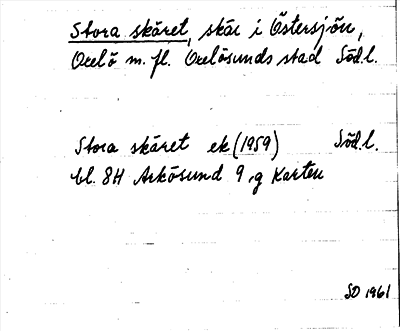 Stora skäret, skär i Östersjön,
Oxelö m. fl. Oxelösunds stad Södl.
Stora skäret ek (1959) Södl.
bl. 8H Arkösund 9, g Karten
SO 1961